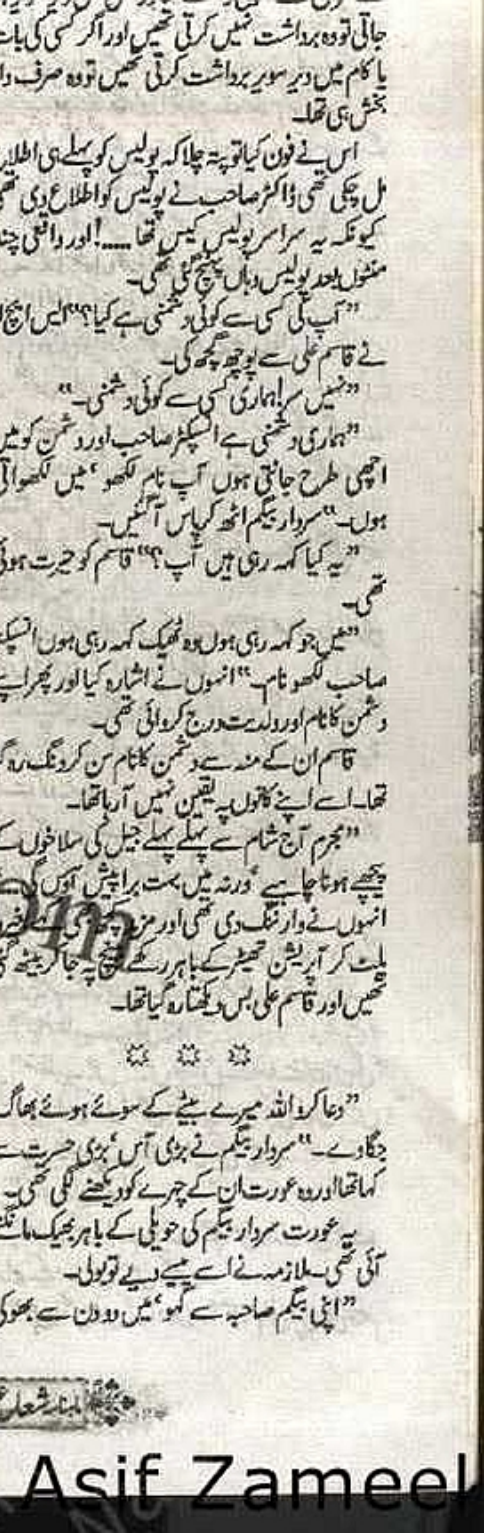 جاتی تو وہ برداشت نہیں کرتی تھیں اور اگر کسی کی بات
یا کام میں دیر سویر برداشت کرتی تھیں تو وہ صرف
بخش ہی تھا۔
اس نے فون کیا تو پتہ چلا کہ پولیس کو پہلے ہی
مل چکی تھی ڈاکٹر صاحب نے پولیس کو اطلاع دی تھی
کیونکہ یہ سراسر پولیس کیس تھا.....! اور واقعی
منٹوں بعد پولیس وہاں پہنچ گئی تھی۔
”آپ کی کسی سے کوئی دشمنی ہے کیا؟“ ایس ایچ
نے قاسم علی سے پوچھ گچھ کی۔
”نہیں سر! ہماری کسی سے کوئی دشمنی۔“
”ہماری دشمنی ہے انسپکٹر صاحب اور دشمن کو میں
اچھی طرح جانتی ہوں آپ نام لکھو‘ میں لکھواتی
ہوں۔“ سردار بیگم اٹھ کر پاس آ گئیں۔
”یہ کیا کہہ رہی ہیں آپ؟“ قاسم کو حیرت ہوئی
تھی۔
”میں جو کہہ رہی ہوں وہ ٹھیک کہہ رہی ہوں
صاحب لکھو نام۔“ انہوں نے اشارہ کیا اور پھر
دشمن کا نام اور ولدیت درج کروائی تھی۔
قاسم ان کے منہ سے دشمن کا نام سن کر دنگ رہ
تھا۔ اسے اپنے کانوں پہ یقین نہیں آ رہا تھا۔
”مجرم آج شام سے پہلے پہلے جیل کی سلاخوں کے
پیچھے ہونا چاہیے‘ ورنہ میں بہت برا پیش آؤں گی
انہوں نے وارننگ دی تھی اور مزید کچھ بھی
پلٹ کر آپریشن تھیٹر کے باہر رکھے بینچ پہ جا کر بیٹھ
تھیں اور قاسم علی بس دیکھتا رہ گیا تھا۔
”دعا کرو اللہ میرے بیٹے کے سوئے ہوئے بھاگ
جگا دے۔“ سردار بیگم نے بڑی آس‘ بڑی حسرت سے
کہا تھا اور وہ عورت ان کے چہرے کو دیکھنے لگی تھی۔
یہ عورت سردار بیگم کی حویلی کے باہر بھیک مانگنے
آئی تھی۔ ملازمہ نے اسے پیسے دیے تو بولی۔
”اپنی بیگم صاحبہ سے کہو‘ میں دو دن سے بھوکی
ماہنامہ شعاع
om
Asif Zameel